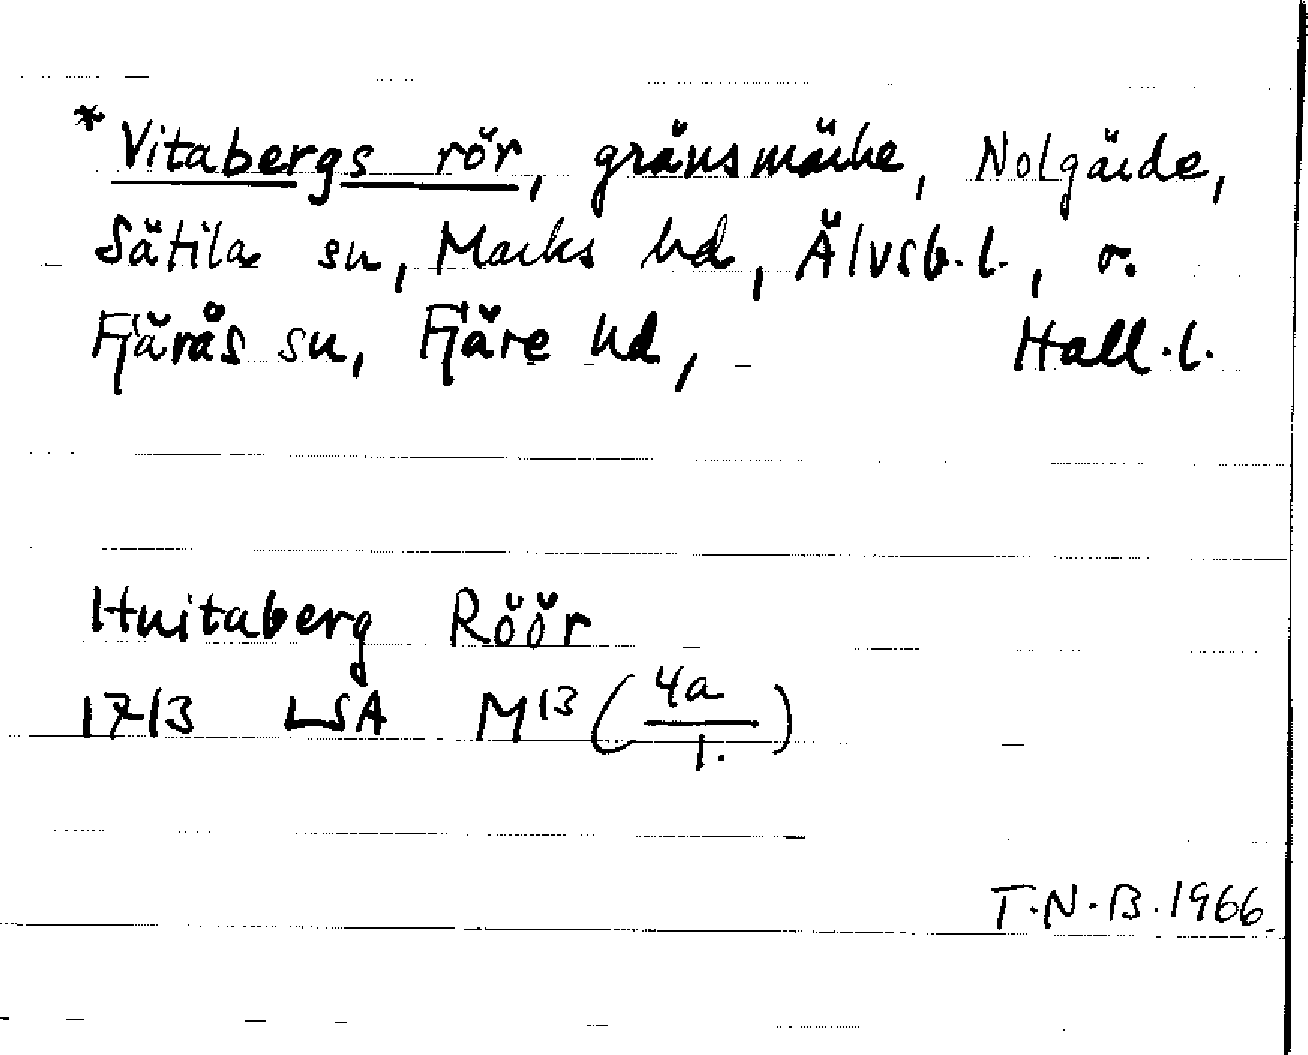 *Vitabergs rör, gränsmärke, Nolgärde,
Sätila sn, Marks hd, Älvsb.l., o.
Fjärås sn, Fjäre hd, Hall.l.
Huitaberg Röör
1713 LSA M13 (4a/1.)
T.N.B. 1966